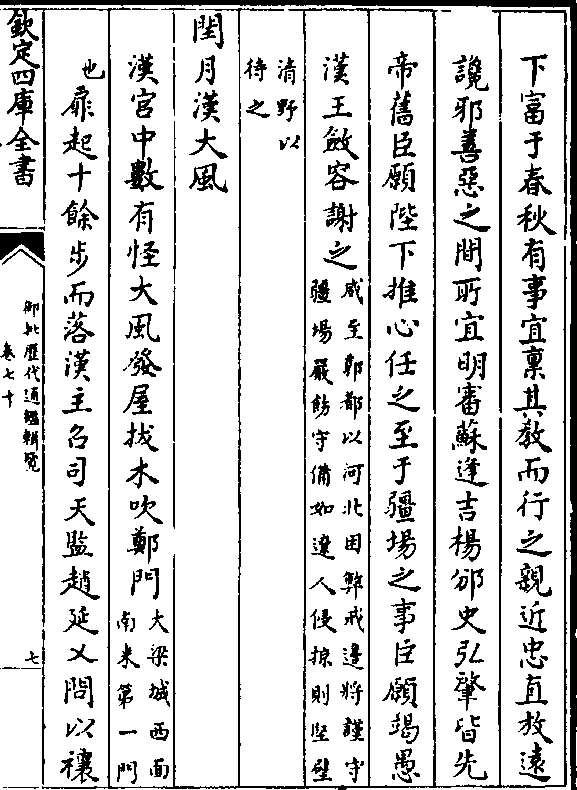 下富于春秋有事宜禀其教而行之親近忠直放遠
讒邪善惡之間所宜明審蘇逢吉楊邠史弘肇皆先
帝舊臣願陛下推心任之至于疆場之事臣願竭愚
漢王斂容謝之威至鄴都以河北困弊戒邊將謹守
疆場嚴飭守備如遼人侵掠則堅壁
清野以
待之
閏月漢大風
漢宫中數有怪大風發屋拔木吹鄭門大梁城西面
南来第一門
也扉起十餘步而落漢主召司天監趙延乂問以禳
欽定四庫全書
御批歷代通鑑輯覽
卷七十
七